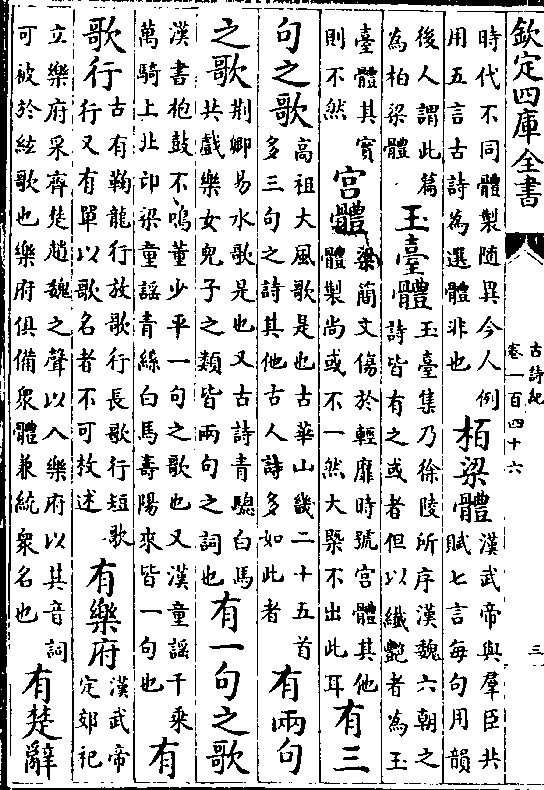 欽定四庫全書
古詩紀
卷一百四十六
三
時代不同體製随異今人例
用五言古詩為選體非也
柏梁體
漢武帝與羣臣共
賦七言每句用韻
後人謂此篇
為柏梁體
玉臺體
玉臺集乃徐陵所序漢魏六朝之
詩皆有之或者但以纖艷者為玉
臺體其實
則不然
宮體
梁簡文傷於輕靡時號宮體其他
體製尚或不一然大槩不出此耳
有三
句之歌
高祖大風歌是也古華山畿二十五首
多三句之詩其他古人詩多如此者
有兩句
之歌
荆卿易水歌是也又古詩青驄白馬
共戲樂女兒子之類皆兩句之詞也
有一句之歌
漢書枹鼓不鳴董少平一句之歌也又漢童謡千乘
萬騎上北卬梁童謡青絲白馬壽陽來皆一句也
有
歌行
古有鞠龍行放歌行長歌行短歌
行又有單以歌名者不可枚述
有樂府
漢武帝
定郊祀
立樂府采齊楚趙魏之聲以入樂府以其音詞
可被於絃歌也樂府俱備衆體兼統衆名也
有楚辭